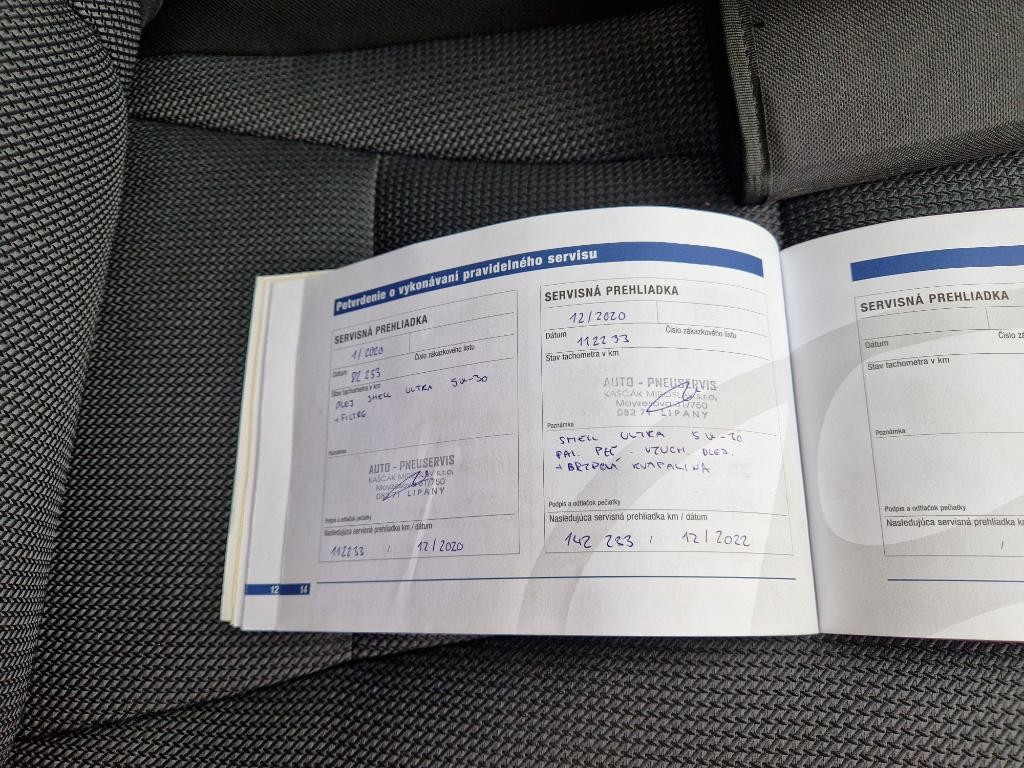 Potvrdenie o vykonávaní pravidelného servisu
SERVISNÁ PREHLIADKA
1/2020
Dátum
Číslo zákazkového listu
82 233
Stav tachometra v km
OLEJ SHELL ULTRA 5W-30
+ FILTRE
Poznámka
AUTO - PNEUSERVIS
KAŠČÁK MIROSLAV s.r.o.
Moyzesova 31/750
082 71 LIPANY
Podpis a odtlačok pečiatky
Nasledujúca servisná prehliadka km / dátum
112233 / 12/2020
SERVISNÁ PREHLIADKA
12/2020
Dátum
Číslo zákazkového listu
112233
Stav tachometra v km
AUTO - PNEUSERVIS
KAŠČÁK MIROSLAV s.r.o.
Moyzesova 31/750
082 71 LIPANY
Poznámka
SHELL ULTRA 5W-30
PAL. PEĽ - VZUCH, OLEJ.
+ BRZDOVÁ KVAPALINA
Podpis a odtlačok pečiatky
Nasledujúca servisná prehliadka km / dátum
142 233 / 12/2022
12 14
SERVISNÁ PREHLIADKA
Dátum
Číslo
Stav tachometra v km
Poznámka
Podpis a odtlačok pečiatky
Nasledujúca servisná prehliadka km
/